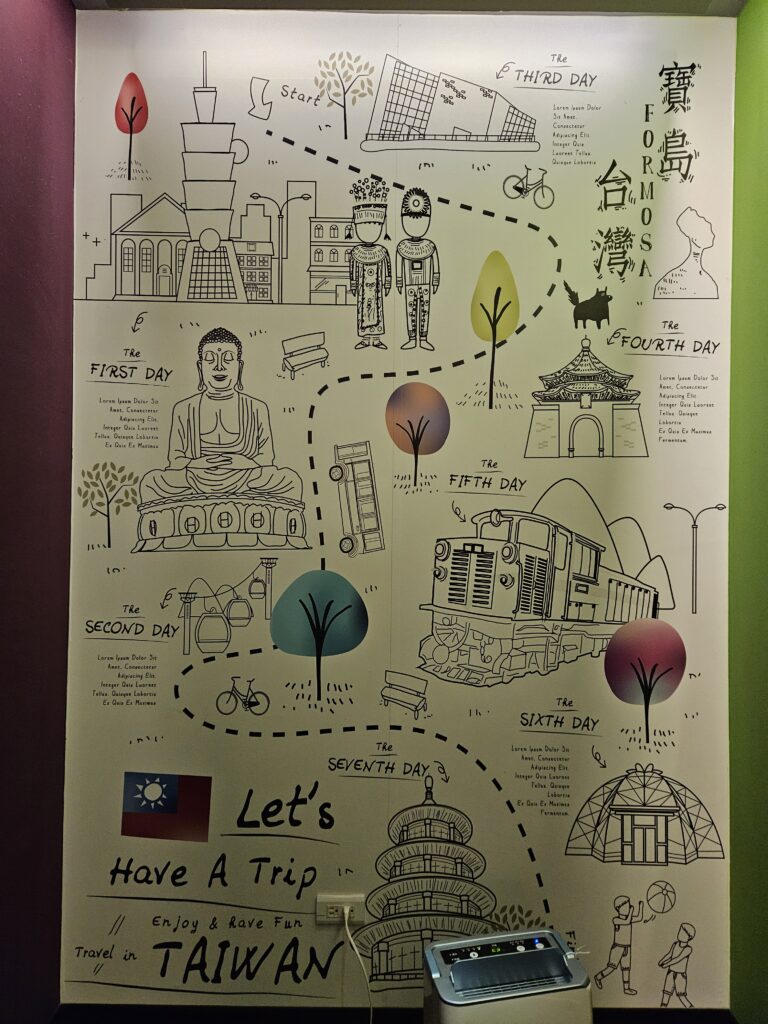 Start
The
THIRD DAY
Lorem Ipsum Dolor
Sit Amet,
Consectetur
Adipiscing Elit.
Integer Quis
Laoreet Tellus,
Quisque Lobortis
寶島
FORMOSA
台灣
The
FIRST DAY
Lorem Ipsum Dolor Sit
Amet, Consectetur
Adipiscing Elit.
Integer Quis Laoreet
Tellus, Quisque Lobortis
Ex Quis Ex Maximus
The
FOURTH DAY
Lorem Ipsum Dolor Sit
Amet, Consectetur
Adipiscing Elit.
Integer Quis Laoreet
Tellus, Quisque
Lobortis
Ex Quis Ex Maximus
Fermentum.
The
FIFTH DAY
The
SECOND DAY
Lorem Ipsum Dolor Sit
Amet, Consectetur
Adipiscing Elit.
Integer Quis Laoreet
Tellus, Quisque Lobortis
Ex Quis Ex Maximus
The
SIXTH DAY
Lorem Ipsum Dolor Sit
Amet, Consectetur
Adipiscing Elit.
Integer Quis Laoreet
Tellus, Quisque
Lobortis
Ex Quis Ex Maximus
Fermentum.
The
SEVENTH DAY
Let's
Have A Trip in
Enjoy & Have Fun
Travel in TAIWAN